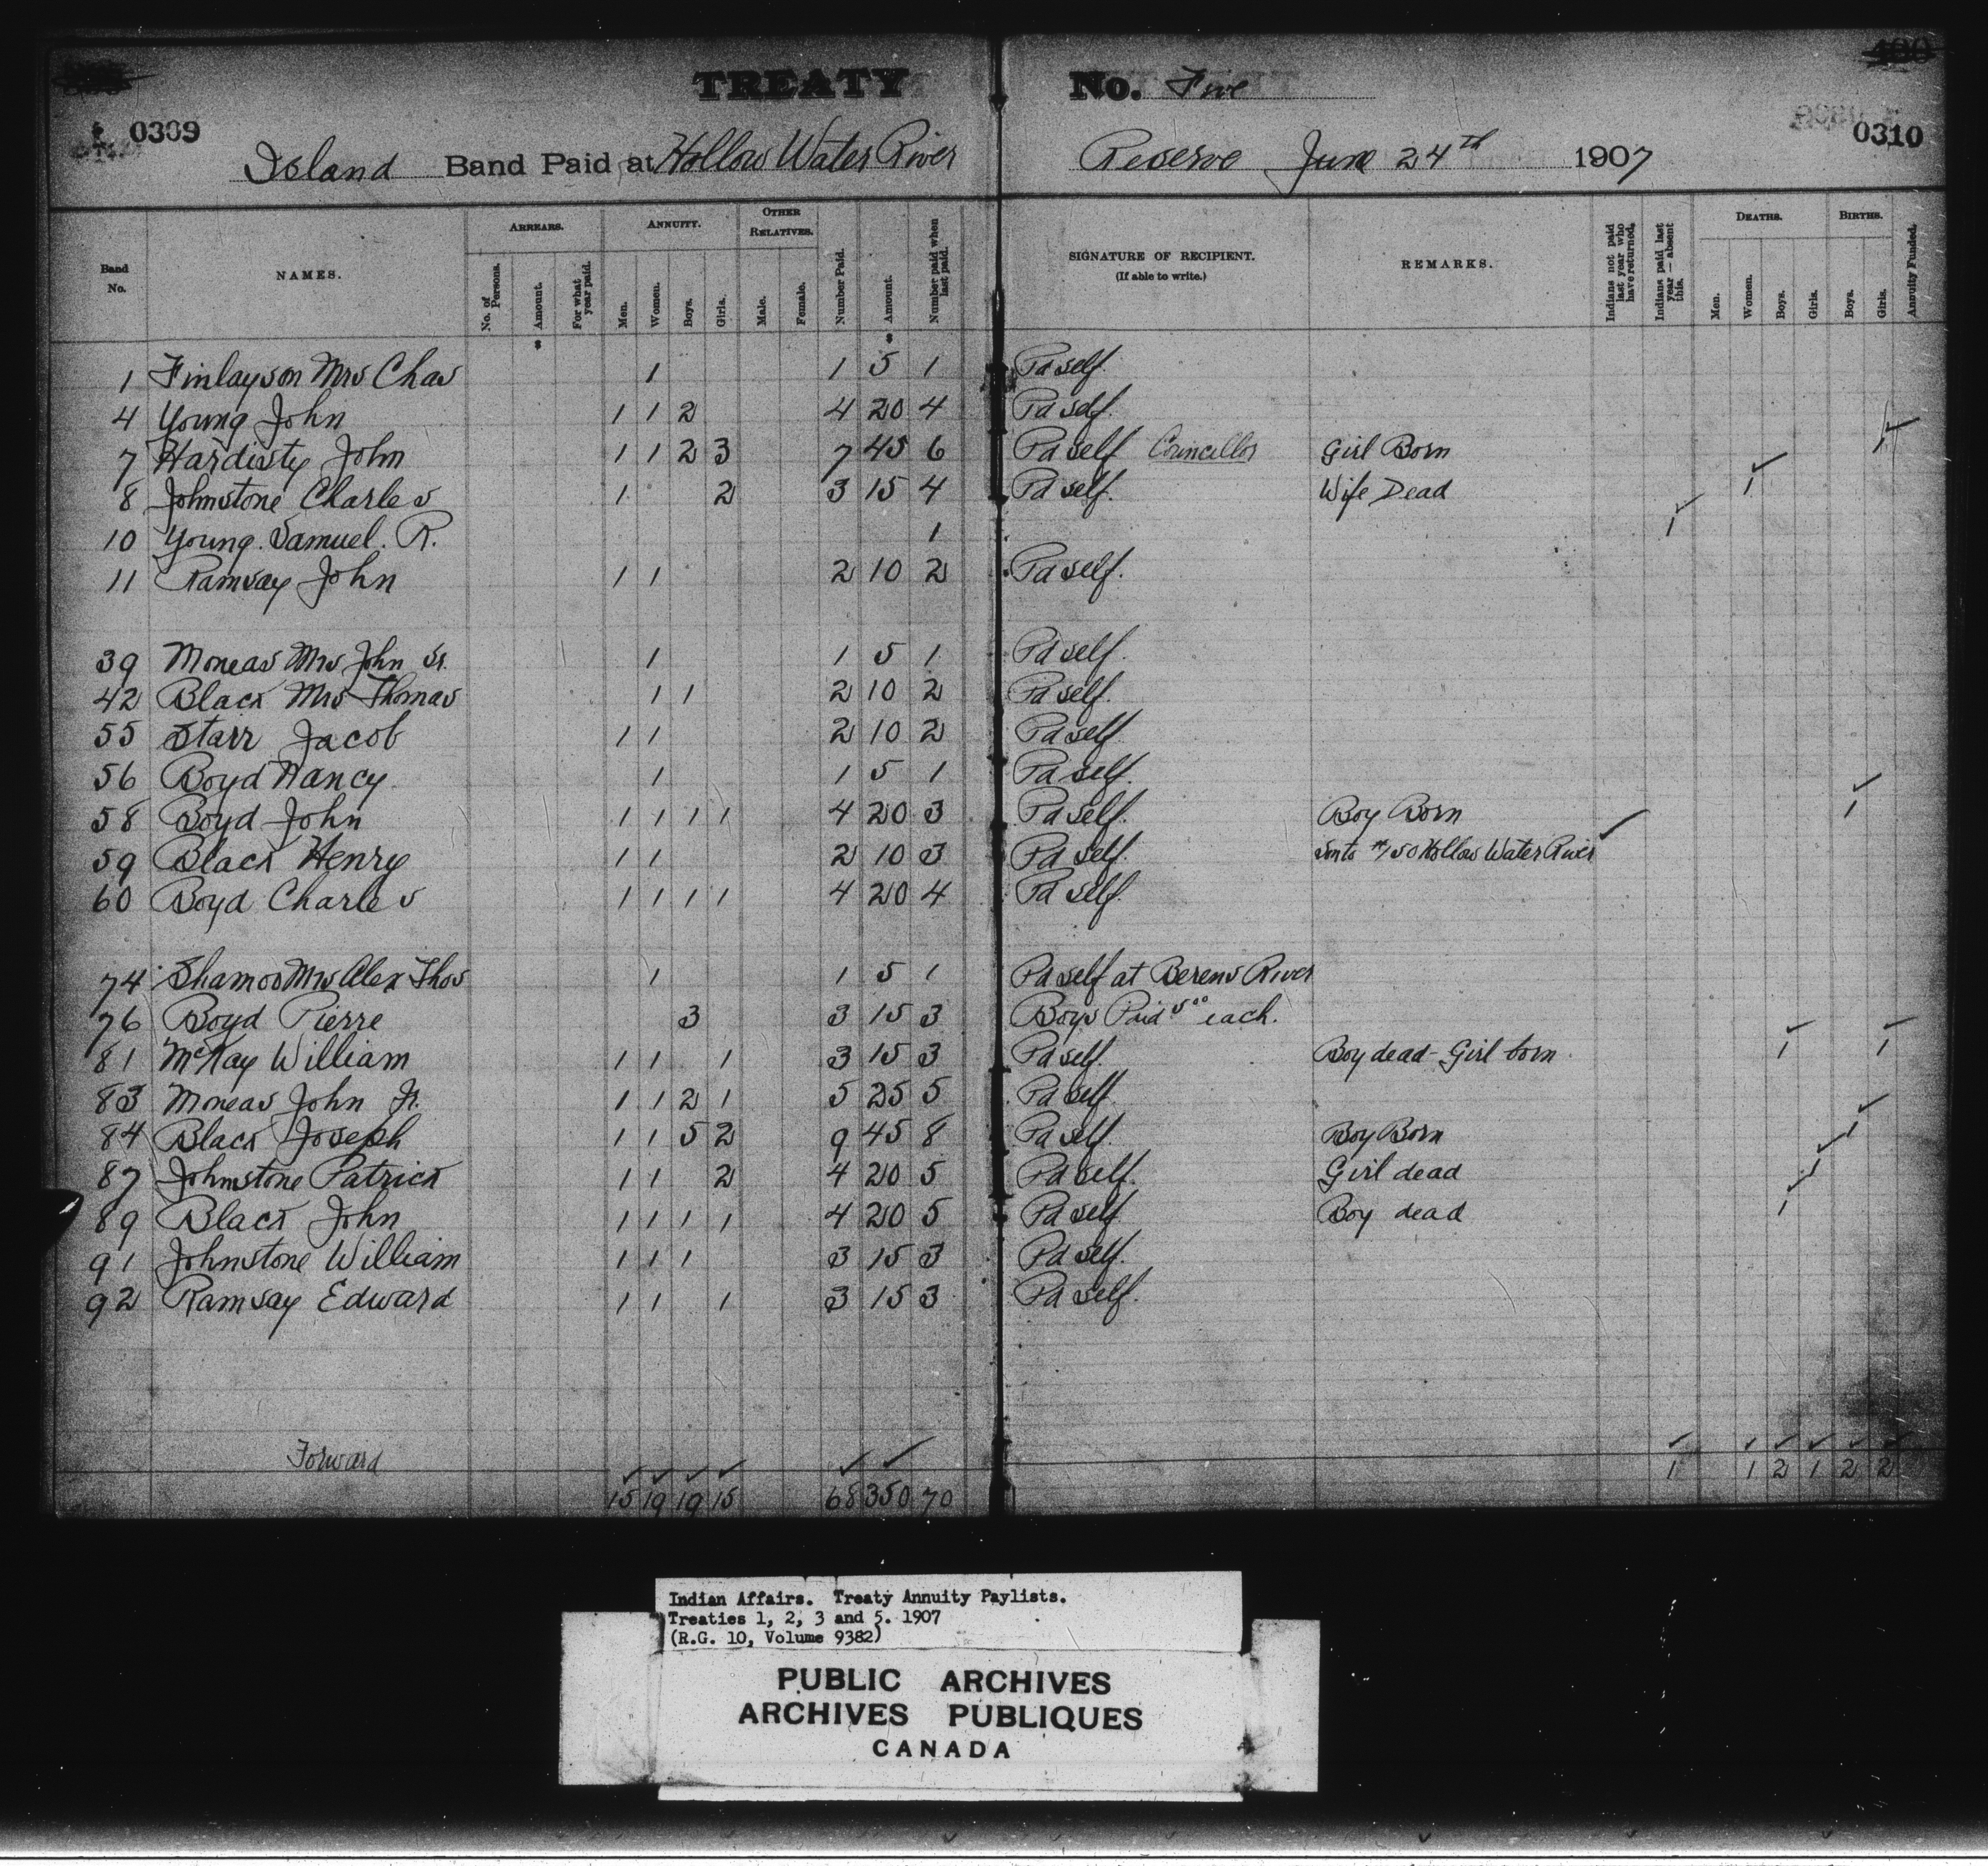 TREATY No. Five
0309
0310
Island Band Paid at Hollow Water River Reserve June 24th 1907
Band No. NAMES. ARREARS. No. of Persons. Amount. For what year paid. ANNUITY. Men. Women. Boys. Girls. OTHER RELATIVES. Male. Female. Number Paid. Amount. Number paid when last paid. SIGNATURE OF RECIPIENT. (If able to write.) REMARKS. Indians not paid last year who have returned. Indians paid last year — absent this. DEATHS. Men. Women. Boys. Girls. BIRTHS. Boys. Girls. Annuity Funded.
1 Finlayson Mrs Chas 1 1 5 1 Pd self.
4 Young John 1 1 2 4 20 4 Pd self.
7 Hardisty John 1 1 2 3 7 45 6 Pd self Councillor Girl Born 1
8 Johnstone Charles 1 2 3 15 4 Pd self. Wife Dead 1
10 Young. Samuel. R. 1 1
11 Ramsay John 1 1 2 10 2 Pd self.
39 Moneas Mrs John Sr. 1 1 5 1 Pd self.
42 Black Mrs Thomas 1 1 2 10 2 Pd self.
55 Starr Jacob 1 1 2 10 2 Pd self
56 Boyd Nancy 1 1 5 1 Pd self.
58 Boyd John 1 1 1 1 4 20 3 Pd self. Boy Born 1
59 Black Henry 1 1 2 10 3 Pd self. Son to #150 Hollow Water River
60 Boyd Charles 1 1 1 1 4 20 4 Pd self.
74 Mrs Alex Thos 1 1 5 1 Pd self at Berens River
76 Boyd Pierre 3 3 15 3 Boys Paid 5.00 each.
81 McKay William 1 1 1 3 15 3 Pd self. Boy dead - Girl born 1 1
83 Moneas John Jr. 1 1 2 1 5 25 5 Pd self
84 Black Joseph 1 1 5 2 9 45 8 Pd self. Boy Born 1
87 Johnstone Patrick 1 1 2 4 20 5 Pd self. Girl dead 1
89 Black John 1 1 1 1 4 20 5 Pd self Boy dead 1
91 Johnstone William 1 1 1 3 15 3 Pd self.
92 Ramsay Edward 1 1 1 3 15 3 Pd self.
Forward 15 19 19 15 68 350 70 1 1 2 1 2 2
Indian Affairs. Treaty Annuity Paylists.
Treaties 1, 2, 3 and 5. 1907
(R.G. 10, Volume 9382)
PUBLIC ARCHIVES
ARCHIVES PUBLIQUES
CANADA